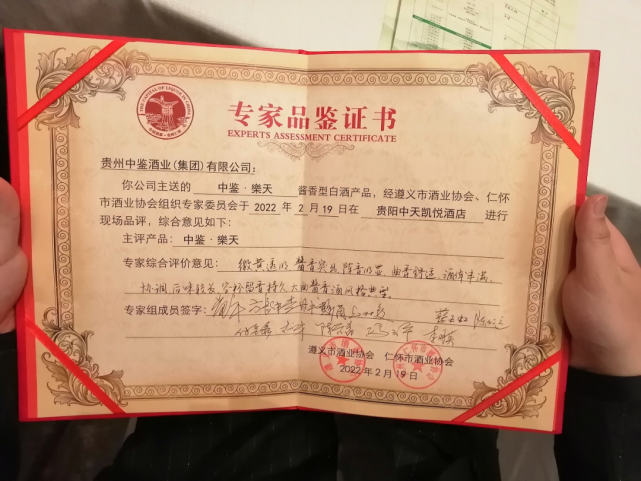 专家品鉴证书
EXPERTS ASSESSMENT CERTIFICATE
贵州中鉴酒业(集团)有限公司:
你公司主送的 中鉴·樂天 酱香型白酒产品，经遵义市酒业协会、仁怀
市酒业协会组织专家委员会于 2022 年 2 月 19 日在 贵阳中天凯悦酒店 进行
现场品评，综合意见如下:
主评产品: 中鉴·樂天
专家综合评价意见: 微黄透明 酱香突出 陈香明显 曲香舒适 酒体丰满
协调 后味较长 空杯留香持久 大曲酱香酒风格典型
专家组成员签字:
遵义市酒业协会 仁怀市酒业协会
2022 年 2 月 19 日